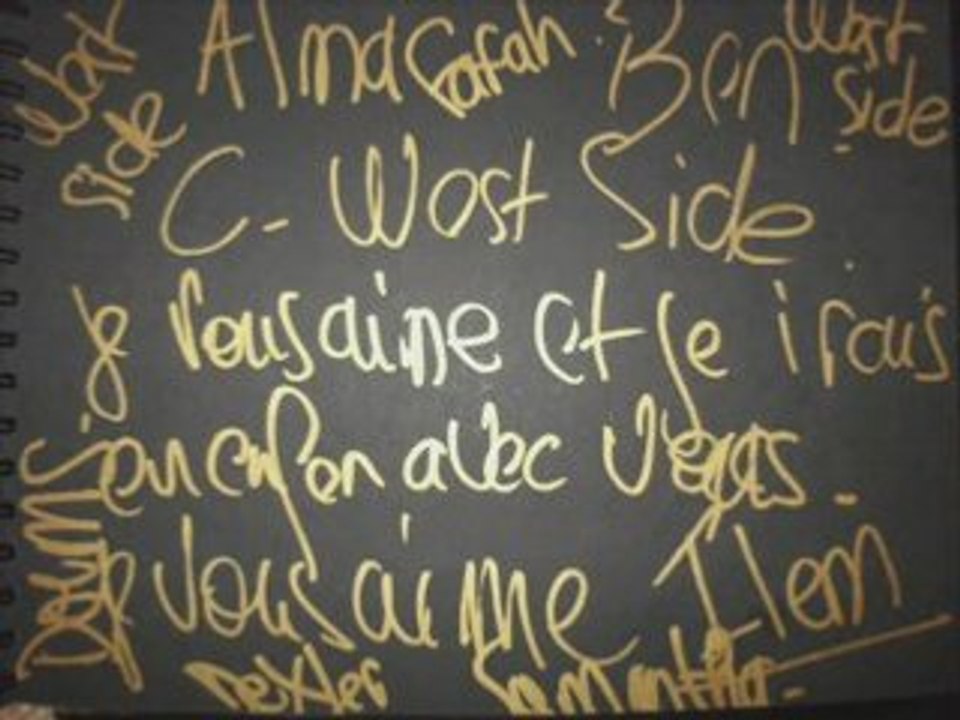 West Side Alma Sarah Ben West Side
C-West Side
je vous aime et je irais
en enfer avec vous.
Je vous aime Ilem
Dexter Samantha-